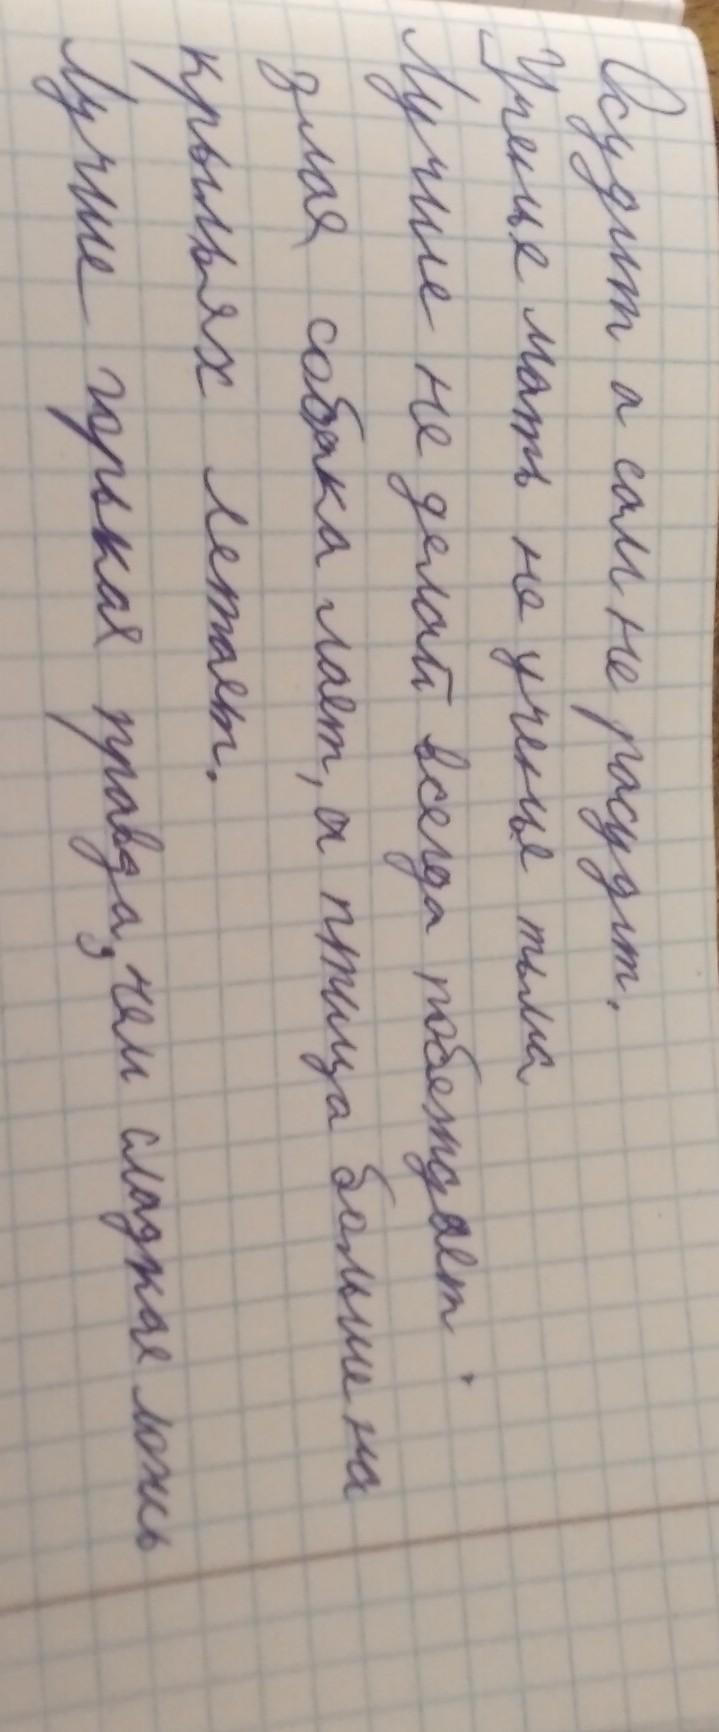 Осудит а сам не расудит.
Ученье мать не ученье тьма
Лучше не делай всегда побеждает.
злая собака лает, а птица больше на
крыльях летает.
Лучше горькая правда, чем сладкая ложь